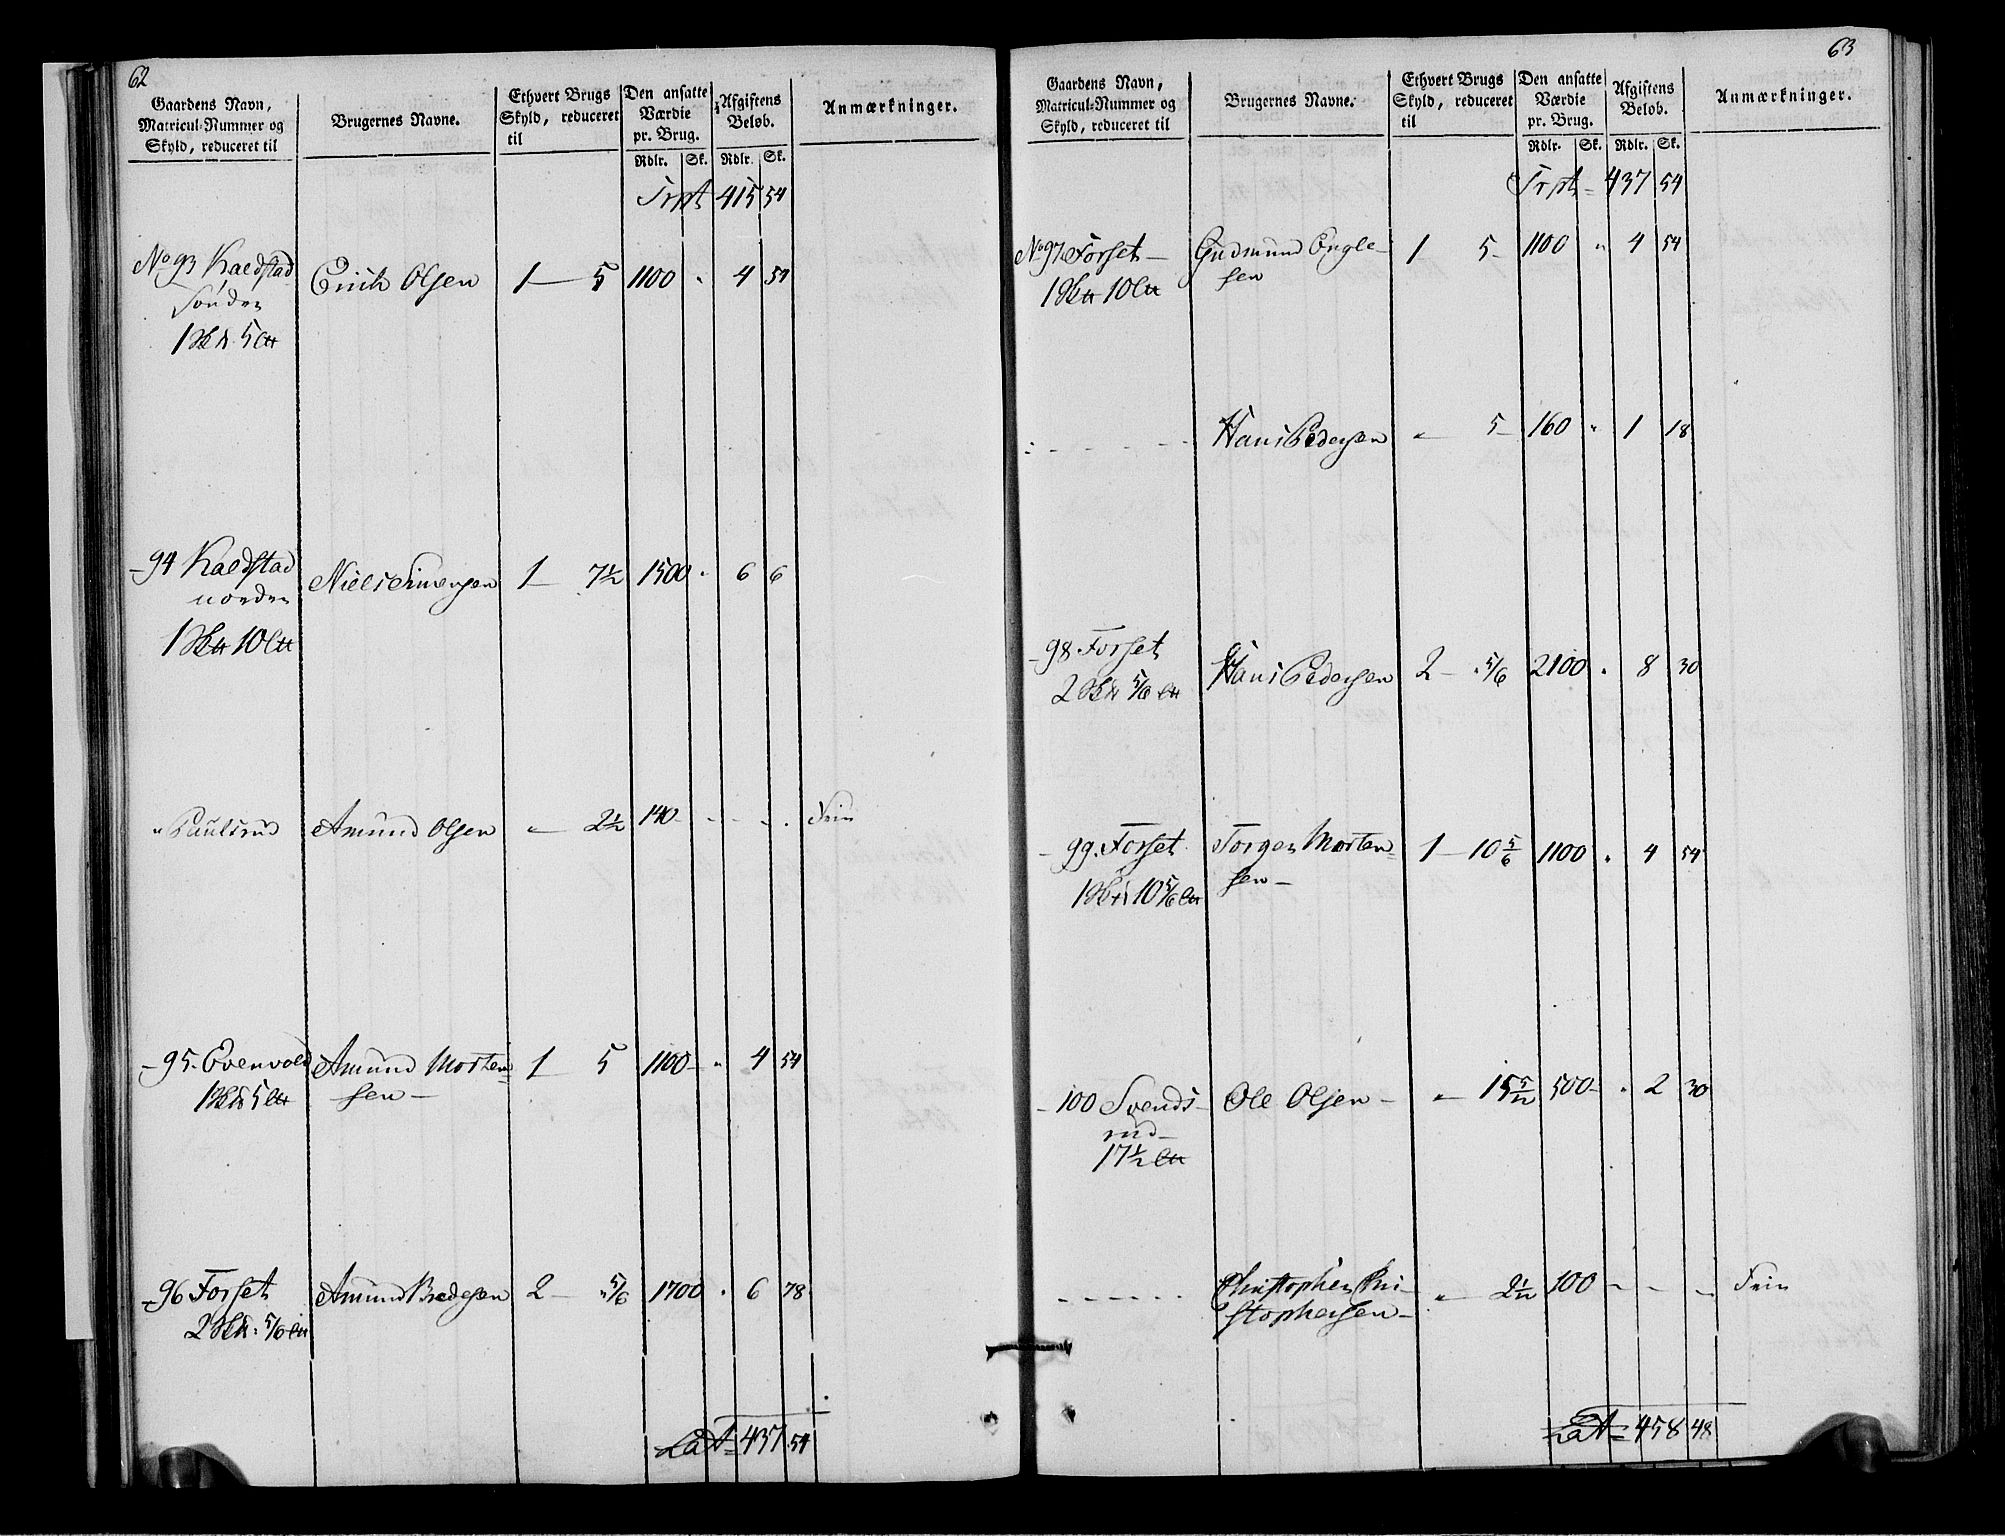 62
Gaardens Navn,
Matricul-Nummer og
Skyld, reduceret til
Brugernes Navne.
Ethvert Brugs
Skyld, reduceret
til
Den ansatte
Værdie
pr. Brug.
Rdlr. Sk.
Afgiftens
Beløb.
Rdlr. Sk.
Anmærkninger.
Trpt 415 54
No 93 Kaldstad Erich Olsen 1 — 5 1100 " 4 54
Sönden
1 Sk℔ 5 l℔
— 94 Kaldstad Niels Simensen 1 — 7½ 1500 " 6 6
norden
1 Sk℔ 10 l℔
" Paulsrud Amund Olsen " — 2½ 140 - - - - Frie
— 95. Evenvold Amund Morten= 1 — 5 1100 - " 4 54
1 Sk℔ 5 l℔ sen —
— 96 Forset Amund Bredesen 2 — " 5/6 1700 " 6 78
2 Sk℔ " 5/6 l℔
Lat = 437 54
63
Gaardens Navn,
Matricul-Nummer og
Skyld, reduceret til
Brugernes Navne.
Ethvert Brugs
Skyld, reduceret
til
Den ansatte
Værdie
pr. Brug.
Rdlr. Sk.
Afgiftens
Beløb.
Rdlr. Sk.
Anmærkninger.
Trpt - 437 54
No 97 Forset — Gudmund Engle- 1 5 - 1100 " 4 54
1 Sk℔ 10 l℔ sen
- - - - - - Hans Pedersen " — 5 - 160 " 1 18
— 98 Forset Hans Pedersen 2 — " 5/6 2100 " 8 30
2 Sk℔ 5/6 l℔
— 99. Forset Torgen Morten= 1 — 10 5/6 1100 " 4 54
1 Sk℔ 10 5/6 l℔ sen —
— 100 Svends- Ole Olsen — " — 15 5/12 500 - " 2 30
rud —
17½ l℔
- - - - - - Christopher Chri- " — 2 1/12 100 - - - Frie
stophersen —
Lat = 458 48